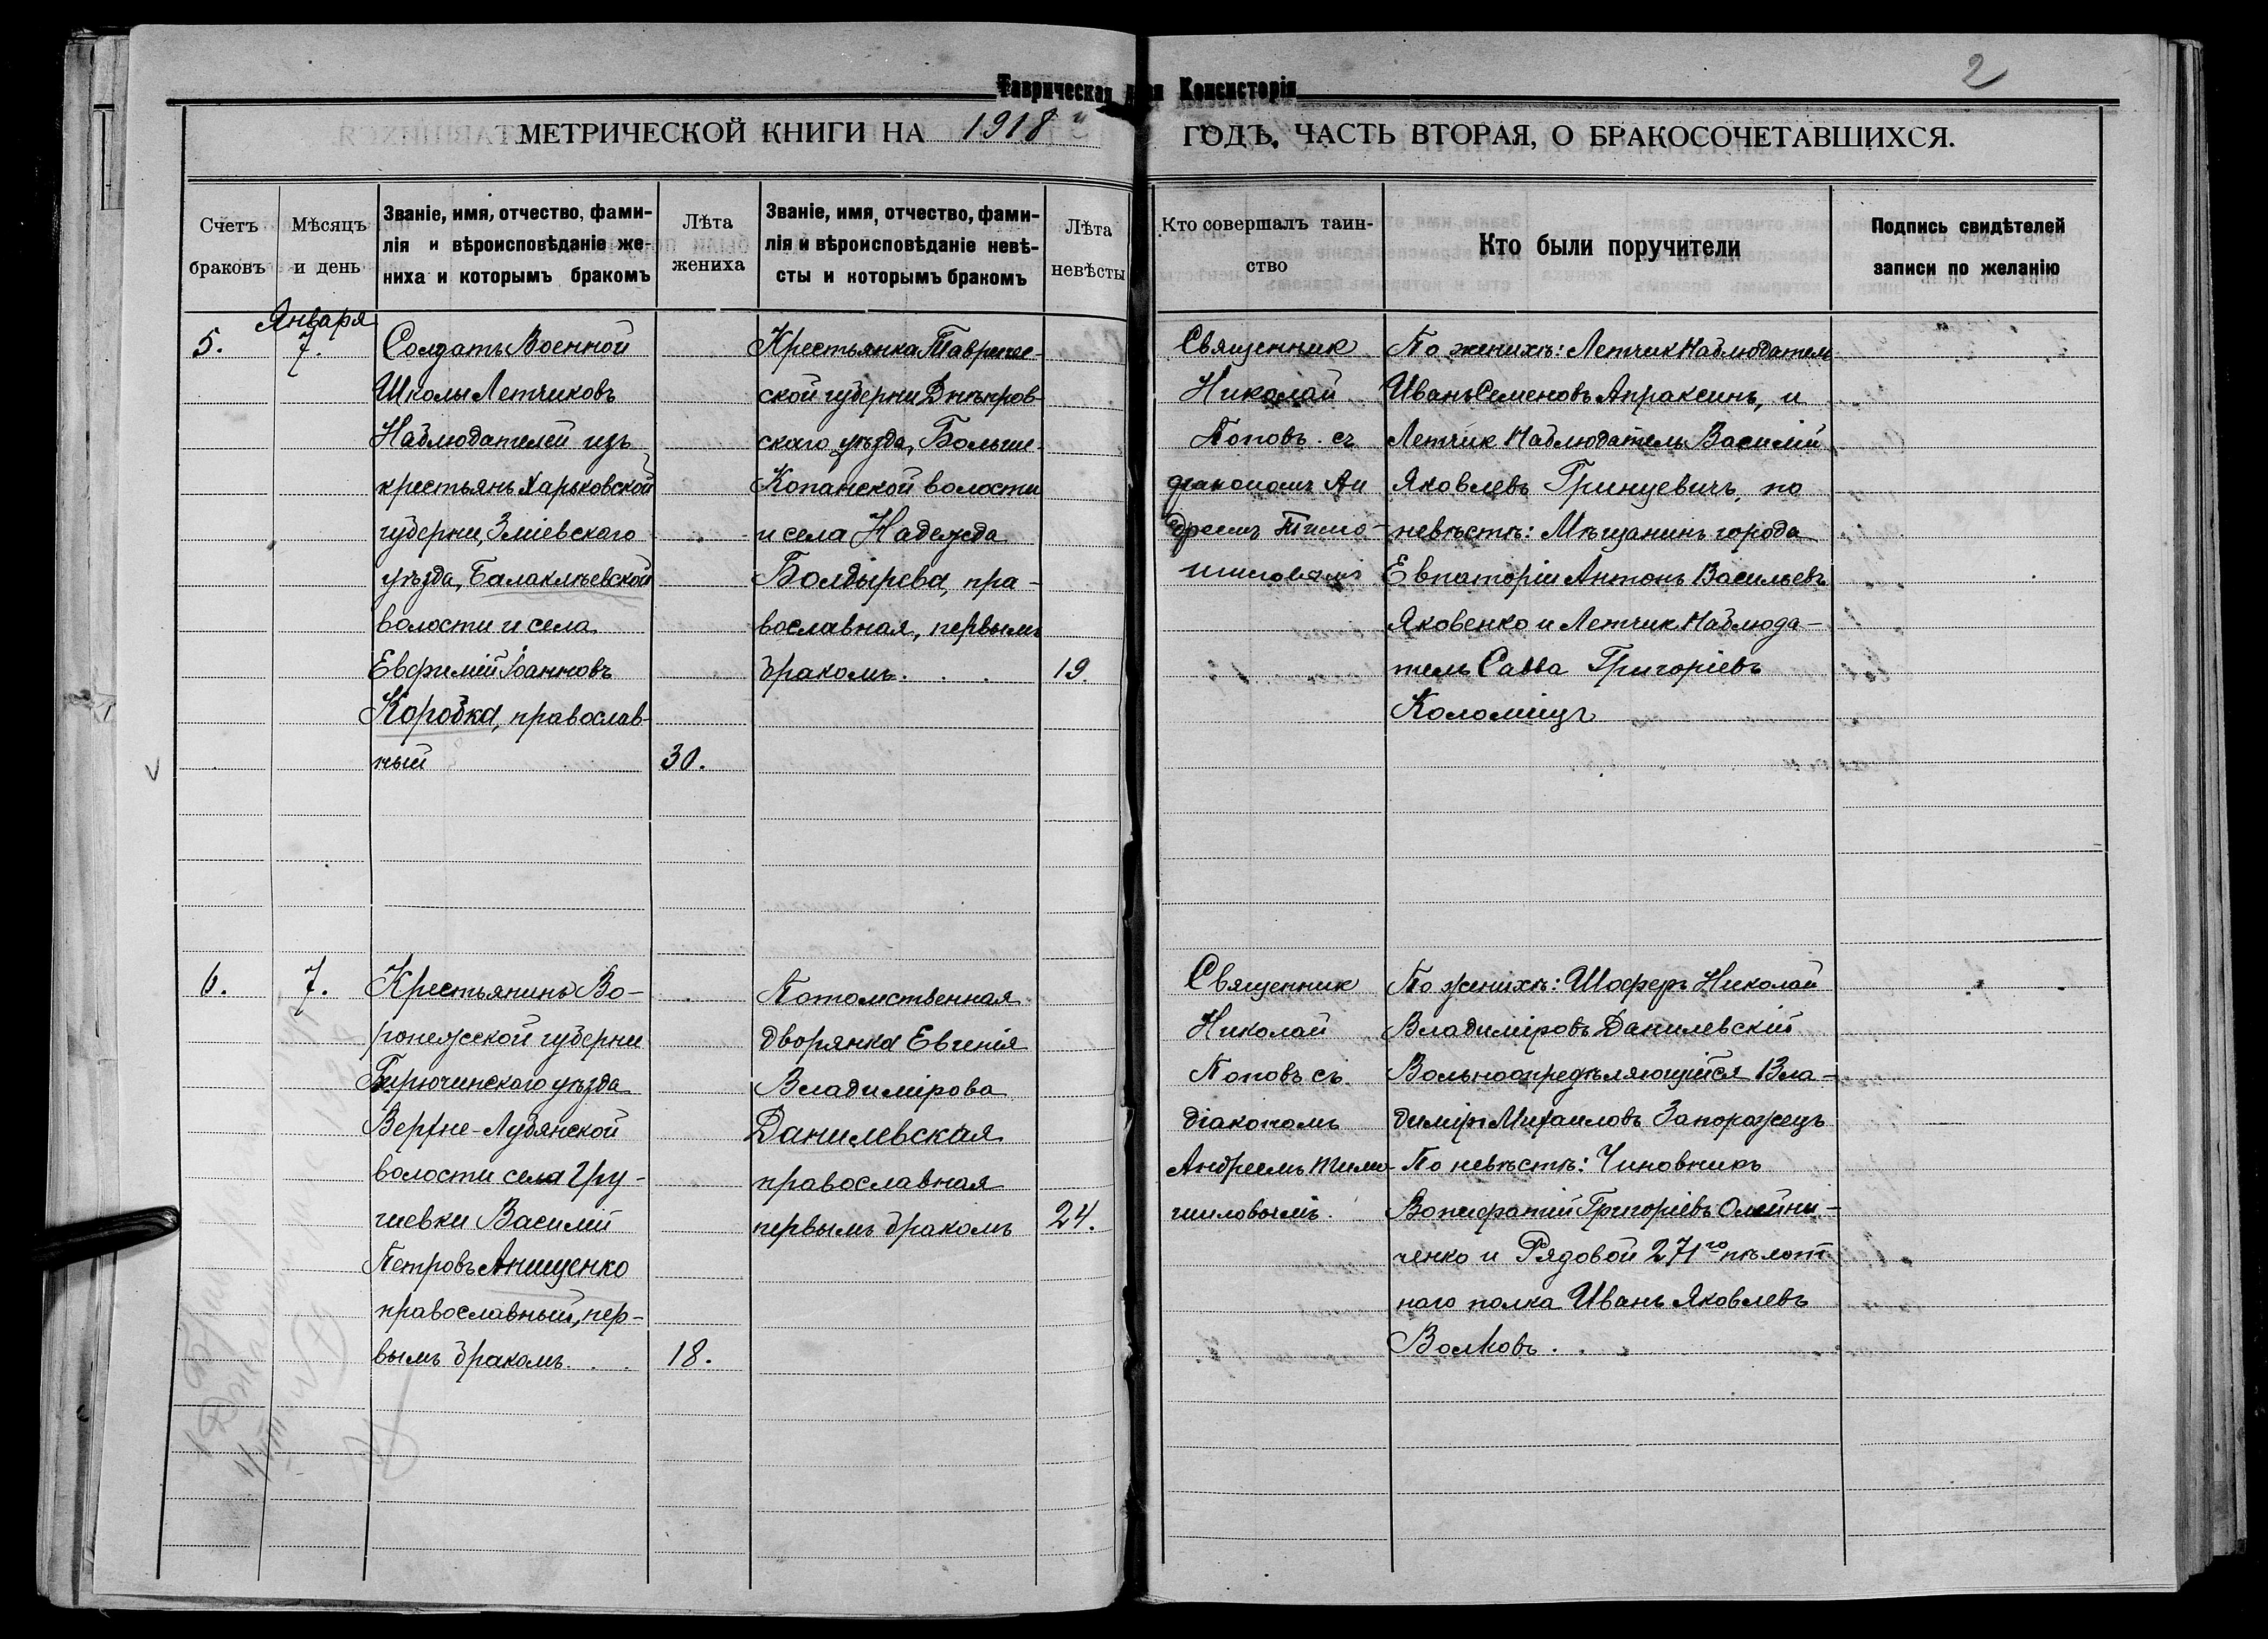 2
Таврическая
Консисторія
МЕТРИЧЕСКОЙ КНИГИ НА 1918
ГОДЪ, ЧАСТЬ ВТОРАЯ, О БРАКОСОЧЕТАВШИХСЯ.
Счетъ браковъ
Мѣсяцъ и день
Званіе, имя, отчество, фами-
лія и вѣроисповѣданіе же-
ниха и которымъ бракомъ
Лѣта жениха
Званіе, имя, отчество, фами-
лія и вѣроисповѣданіе невѣ-
сты и которымъ бракомъ
Лѣта невѣсты
Кто совершалъ таин-
ство
Кто были поручители
Подпись свидѣтелей
записи по желанію
Января
5.
7.
Солдатъ Военной
Школы Летчиковъ
Наблюдателей изъ
крестьянъ Харьковской
губерни, Зміевскаго
уѣзда, Балаклѣевской
волости и села
Евфимій Іоанновъ
Коробка, православ-
ный
30.
Крестьянка Тавриче-
ской губерни Днѣпров-
скаго уѣзда, Больше-
Копанской волости
и села Надежда
Болдырева, пра-
вославная, первымъ
бракомъ.
19.
Священник
Николай
Поповъ съ
діакономъ Ан
дреемъ Тимо-
шиловымъ
По женихѣ: Летчик Наблюдатель
Иванъ Семеновъ Апраксинъ, и
Летчик Наблюдатель Василій
Яковлевъ Гринцевичъ, по
невѣстѣ: Мѣщанинъ города
Евпаторіи Антонъ Васильевъ
Яковенко и Летчик Наблюда-
тель Савва Григоріевъ
Коломіицъ
6.
7.
Крестьянинъ Во-
ронежской губерни
Бирючинскаго уѣзда
Верхне-Лубянской
волости села Гру-
шевки Василій
Петровъ Анищенко
православный, пер-
вымъ бракомъ
18.
Потомственная
дворянка Евгенія
Владимірова
Данилевская
православная
первымъ бракомъ
24.
Священник
Николай
Поповъ съ
діакономъ
Андреемъ Тимо-
шиловымъ.
По женихѣ: Шоферъ Николай
Владиміровъ Данилевскій
Вольноопредѣляющійся Вла-
димір Михаиловъ Запорожецъ
По невѣстѣ: Чиновникъ
Вонифатій Григоріевъ Олейни-
ченко и Рядовой 271го пѣхот
наго полка Иванъ Яковлевъ
Волковъ.